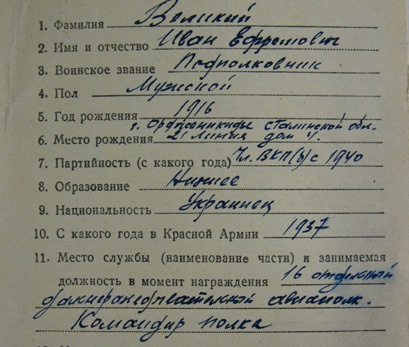 1. Фамилия Великий
2. Имя и отчество Иван Ефремович
3. Воинское звание Подполковник
4. Пол Мужской
5. Год рождения 1916
г. Орджоникидзе Сталинской обл.
6. Место рождения 2 линия дом 4.
7. Партийность (с какого года) Чл. ВКП(б) с 1940
8. Образование Низшее
9. Национальность Украинец
10. С какого года в Красной Армии 1937
11. Место службы (наименование части) и занимаемая
должность в момент награждения 16 отдельный
авиаполк.
Командир полка